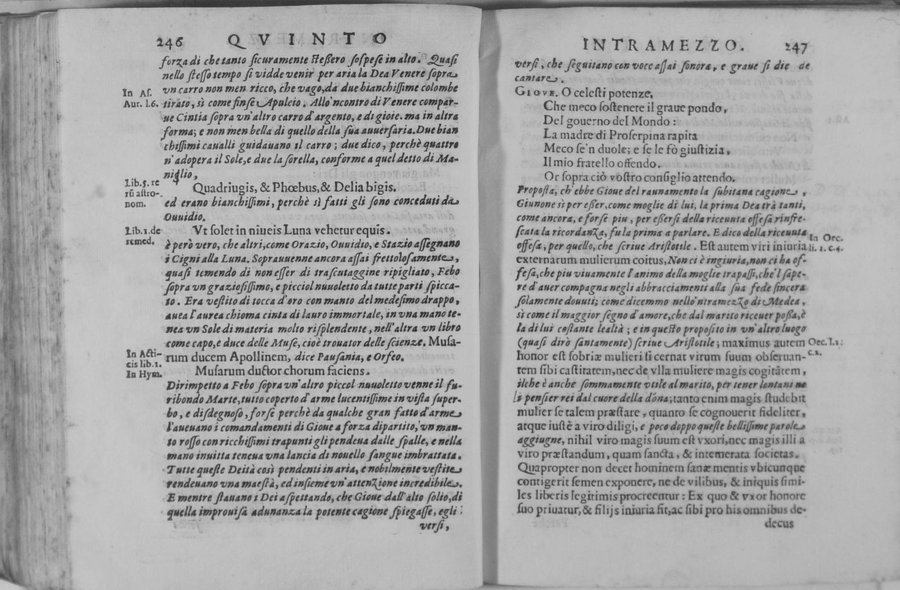 246 QVINTO
forza di che tanto sicuramente stessero sospese in alto. Quasi
nello stesso tempo si vidde venir per aria la Dea Venere sopra
vn carro non men ricco, che vago, da due bianchissime colombe
In As.
Aur. l.6.
tirato, sì come finse Apuleio. Allo'ncontro di Venere compar-
ue Cintia sopra vn'altro carro d'argento, e di gioie. ma in altra
forma; e non men bella di quello della sua auuersaria. Due bian
chissimi caualli guidauano il carro; due dico, perchè quattro
n'adopera il Sole, e due la sorella, conforme a quel detto di Ma-
niglio,
Lib.5. re
rũ astro-
nom.
Quadriugis, & Phœbus, & Delia bigis.
ed erano bianchissimi, perchè sì fatti gli sono conceduti da
Ouuidio.
Lib.1.de
remed.
Vt solet in niueis Luna vehetur equis.
è però vero, che altri, come Orazio, Ouuidio, e Stazio assegnano
i Cigni alla Luna. Soprauuenne ancora assai frettolosamente,
quasi temendo di non esser di trascutaggine ripigliato, Febo
sopra vn graziosissimo, e picciol nuuoletto da tutte parti spicca-
to. Era vestito di tocca d'oro con manto del medesimo drappo,
auea l'aurea chioma cinta di lauro immortale, in vna mano te-
nea vn Sole di materia molto risplendente, nell'altra vn libro
come capo, e duce delle Muse, cioè trouator delle scienze. Musa-
In Acti-
cis lib.1.
In Hym.
rum ducem Apollinem, dice Pausania, e Orfeo.
Musarum ductor chorum faciens.
Dirimpetto a Febo sopra vn'altro piccol nuuoletto venne il fu-
ribondo Marte, tutto coperto d'arme lucentissime in vista super-
bo, e disdegnoso, forse perchè da qualche gran fatto d'arme
l'aueuano i comandamenti di Gioue a forza dipartito, vn man-
to rosso con ricchissimi trapunti gli pendeua dalle spalle, e nella
mano inuitta teneua vna lancia di nouello sangue imbrattata.
Tutte queste Deità così pendenti in aria, e nobilmente vestite
rendeuano vna maestà, ed insieme vn'attenzione incredibile.
E mentre stauano i Dei aspettando, che Gioue dall'alto solio, di
quella improuisa adunanza la potente cagione spiegasse, egli
versi,
INTRAMEZZO. 247
versi, che seguitano con voce assai sonora, e graue si die de
cantare.
GIOVE. O celesti potenze,
Che meco sostenere il graue pondo,
Del gouerno del Mondo:
La madre di Proserpina rapita
Meco se'n duole; e se le fò giustizia,
Il mio fratello offendo.
Or sopra ciò vostro consiglio attendo.
Proposta, ch'ebbe Gioue del raunamento la subitana cagione,
Giunone sì per esser, come moglie di lui, la prima Dea trà tanti,
come ancora, e forse piu, per essersi della riceuuta offesa rinfre-
scata la ricordanza, fu la prima a parlare. E dico della riceuuta
offesa, per quello, che scriue Aristotile. Est autem viri iniuria
In Oec.
li. 1. c.4.
externarum mulierum coitus, Non ci è ingiuria, non ci ha of-
fesa, che piu viuamente l'animo della moglie trapassi, che'l sape-
re d'auer compagna negli abbracciamenti alla sua fede sincera
solamente douuti; come dicemmo nello'ntramezzo di Medea,
sì come il maggior segno d'amore, che dal marito riceuer possa, è
la di lui costante lealtà; e in questo proposito in vn'altro luogo
(quasi dirò santamente) scriue Aristotile; maximus autem
Oec. l.1.
c.2.
honor est sobriæ mulieri si cernat virum suum obseruan-
tem sibi castitatem, nec de vlla muliere magis cogitãtem,
ilche è anche sommamente vtile al marito, per tener lontani ne
i pensier rei dal cuore della dõna; tanto enim magis studebit
mulier se talem præstare, quanto se cognouerit fideliter,
atque iustè a viro diligi, e poco doppo queste bellissime parole
aggiugne, nihil viro magis suum est vxori, nec magis illi a
viro præstandum, quam sancta, & intemerata societas.
Quapropter non decet hominem sanæ mentis vbicunque
contigerit semen exponere, ne de vilibus, & iniquis simi-
les liberis legitimis procreentur: Ex quo & vxor honore
suo priuatur, & filijs iniuria fit, ac sibi pro his omnibus de-
decus